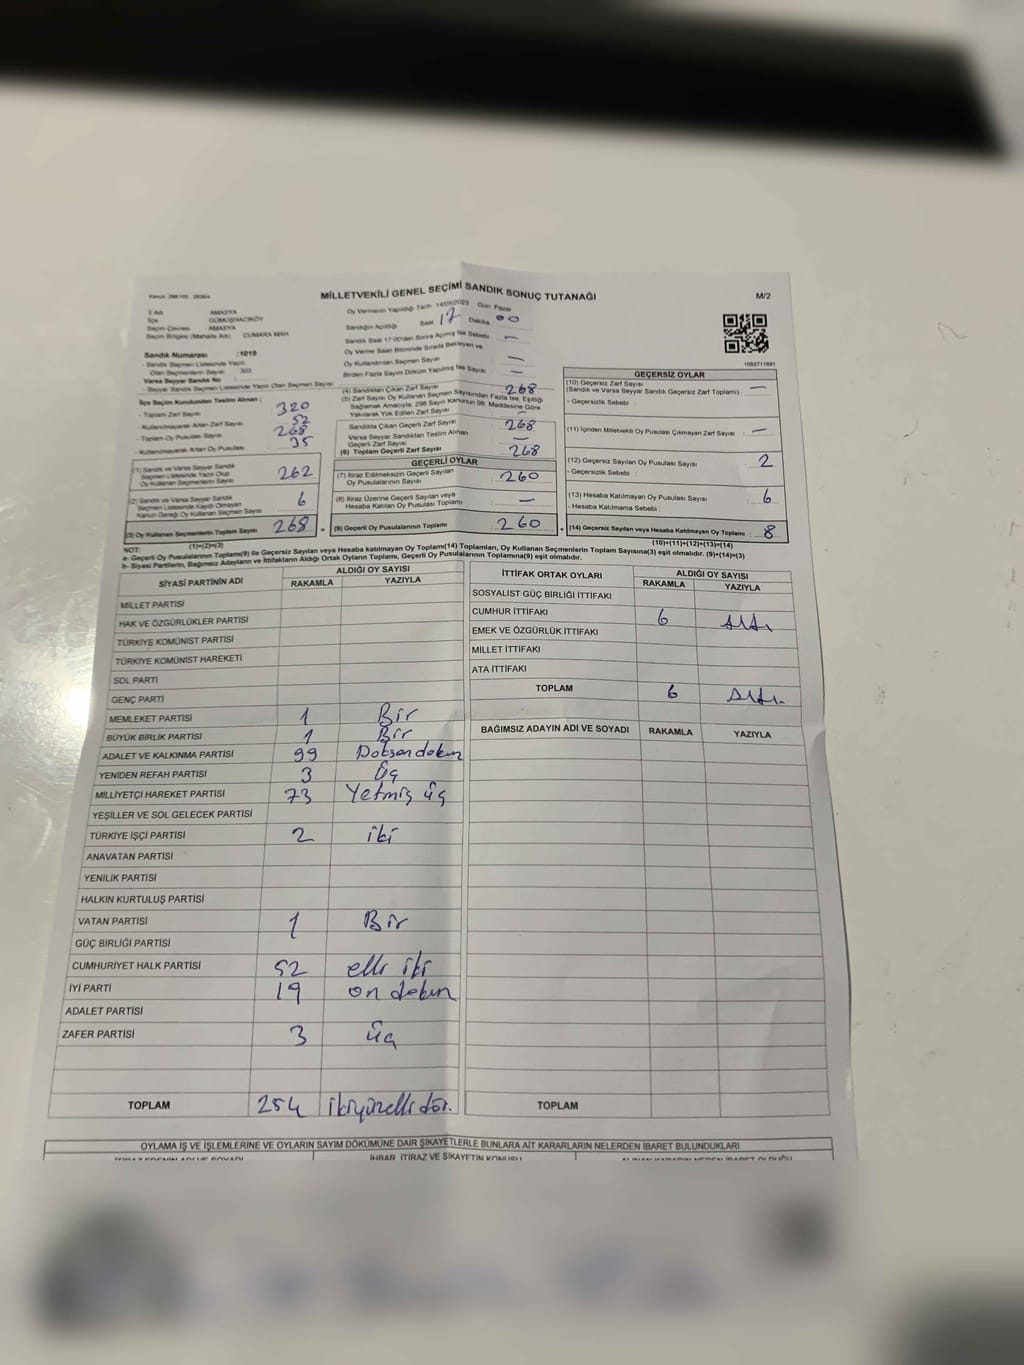 MİLLETVEKİLİ GENEL SEÇİMİ SANDIK SONUÇ TUTANAĞI
M/2
İl Adı AMASYA
İlçe GÜMÜŞHACIKÖY
Seçim Çevresi AMASYA
Seçim Bölgesi (Mahalle Adı) CUMARA MAH
Sandık Numarası : 1019
- Sandık Seçmen Listesinde Yazılı
Olan Seçmenlerin Sayısı 303
Varsa Seyyar Sandık No
- Seyyar Sandık Seçmen Listesinde Yazılı Olan Seçmen Sayısı
İlçe Seçim Kurulundan Teslim Alınan ;
- Toplam Zarf Sayısı 320
- Kullanılmayarak Artan Zarf Sayısı 52
- Toplam Oy Pusulası Sayısı 268
- Kullanılmayarak Artan Oy Pusulası 35
(1) Sandık ve Varsa Seyyar Sandık
Seçmen Listesinde Yazılı Olup
Oy Kullanan Seçmenlerin Sayısı 262
(2) Sandık ve Varsa Seyyar Sandık
Seçmen Listesinde Kayıtlı Olmayan
Kanun Gereği Oy Kullanan Seçmen Sayısı 6
(3) Oy Kullanan Seçmenlerin Toplam Sayısı 268
(1)+(2)=(3)
Oy Vermenin Yapıldığı Tarih 14/05/2023 Gün Pazar
Sandığın Açıldığı Saat 17 Dakika 00
Sandık Saat 17:00'den Sonra Açılmış İse Sebebi : —
Oy Verme Saati Bitiminde Sırada Bekleyen ve
Oy Kullandırılan Seçmen Sayısı —
Birden Fazla Sayım Döküm Yapılmış İse Sayısı —
(4) Sandıktan Çıkan Zarf Sayısı 268
(5) Zarf Sayısı Oy Kullanan Seçmen Sayısından Fazla İse, Eşitliği
Sağlamak Amacıyla; 298 Sayılı Kanunun 98. Maddesine Göre
Yakılarak Yok Edilen Zarf Sayısı —
Sandıkta Çıkan Geçerli Zarf Sayısı : 268
Varsa Seyyar Sandıktan Teslim Alınan
Geçerli Zarf Sayısı —
(6) Toplam Geçerli Zarf Sayısı 268
GEÇERLİ OYLAR
(7) İtiraz Edilmeksizin Geçerli Sayılan
Oy Pusulalarının Sayısı : 260
(8) İtiraz Üzerine Geçerli Sayılan veya
Hesaba Katılan Oy Pusulası Toplamı —
= (9) Geçerli Oy Pusulalarının Toplamı : 260
1083711691
GEÇERSİZ OYLAR
(10) Geçersiz Zarf Sayısı
(Sandık ve Varsa Seyyar Sandık Geçersiz Zarf Toplamı) : —
- Geçersizlik Sebebi :
(11) İçinden Milletvekili Oy Pusulası Çıkmayan Zarf Sayısı : —
(12) Geçersiz Sayılan Oy Pusulası Sayısı : 2
- Geçersizlik Sebebi :
(13) Hesaba Katılmayan Oy Pusulası Sayısı : 6
- Hesaba Katılmama Sebebi :
+ (14) Geçersiz Sayılan veya Hesaba Katılmayan Oy Toplamı : 8
(10)+(11)+(12)+(13)=(14)
NOT:
a- Geçerli Oy Pusulalarının Toplamı(9) ile Geçersiz Sayılan veya Hesaba katılmayan Oy Toplamı(14) Toplamları, Oy Kullanan Seçmenlerin Toplam Sayısına(3) eşit olmalıdır. (9)+(14)=(3)
b- Siyasi Partilerin, Bağımsız Adayların ve İttifakların Aldığı Ortak Oyların Toplamı, Geçerli Oy Pusulalarının Toplamına(9) eşit olmalıdır.
SİYASİ PARTİNİN ADI ALDIĞI OY SAYISI
RAKAMLA YAZIYLA
MİLLET PARTİSİ
HAK VE ÖZGÜRLÜKLER PARTİSİ
TÜRKİYE KOMÜNİST PARTİSİ
TÜRKİYE KOMÜNİST HAREKETİ
SOL PARTİ
GENÇ PARTİ
MEMLEKET PARTİSİ 1 Bir
BÜYÜK BİRLİK PARTİSİ 1 Bir
ADALET VE KALKINMA PARTİSİ 99 Doksan dokuz
YENİDEN REFAH PARTİSİ 3 Üç
MİLLİYETÇİ HAREKET PARTİSİ 73 Yetmiş üç
YEŞİLLER VE SOL GELECEK PARTİSİ
TÜRKİYE İŞÇİ PARTİSİ 2 iki
ANAVATAN PARTİSİ
YENİLİK PARTİSİ
HALKIN KURTULUŞ PARTİSİ
VATAN PARTİSİ 1 Bir
GÜÇ BİRLİĞİ PARTİSİ
CUMHURİYET HALK PARTİSİ 52 elli iki
İYİ PARTİ 19 on dokuz
ADALET PARTİSİ
ZAFER PARTİSİ 3 üç
TOPLAM 254 ikiyüzelli dör.
İTTİFAK ORTAK OYLARI ALDIĞI OY SAYISI
RAKAMLA YAZIYLA
SOSYALİST GÜÇ BİRLİĞİ İTTİFAKI
CUMHUR İTTİFAKI 6 Altı
EMEK VE ÖZGÜRLÜK İTTİFAKI
MİLLET İTTİFAKI
ATA İTTİFAKI
TOPLAM 6 Altı.
BAĞIMSIZ ADAYIN ADI VE SOYADI RAKAMLA YAZIYLA
TOPLAM
OYLAMA İŞ VE İŞLEMLERİNE VE OYLARIN SAYIM DÖKÜMÜNE DAİR ŞİKAYETLERLE BUNLARA AİT KARARLARIN NELERDEN İBARET BULUNDUKLARI
İHBAR, İTİRAZ VE ŞİKAYETİN KONUSU